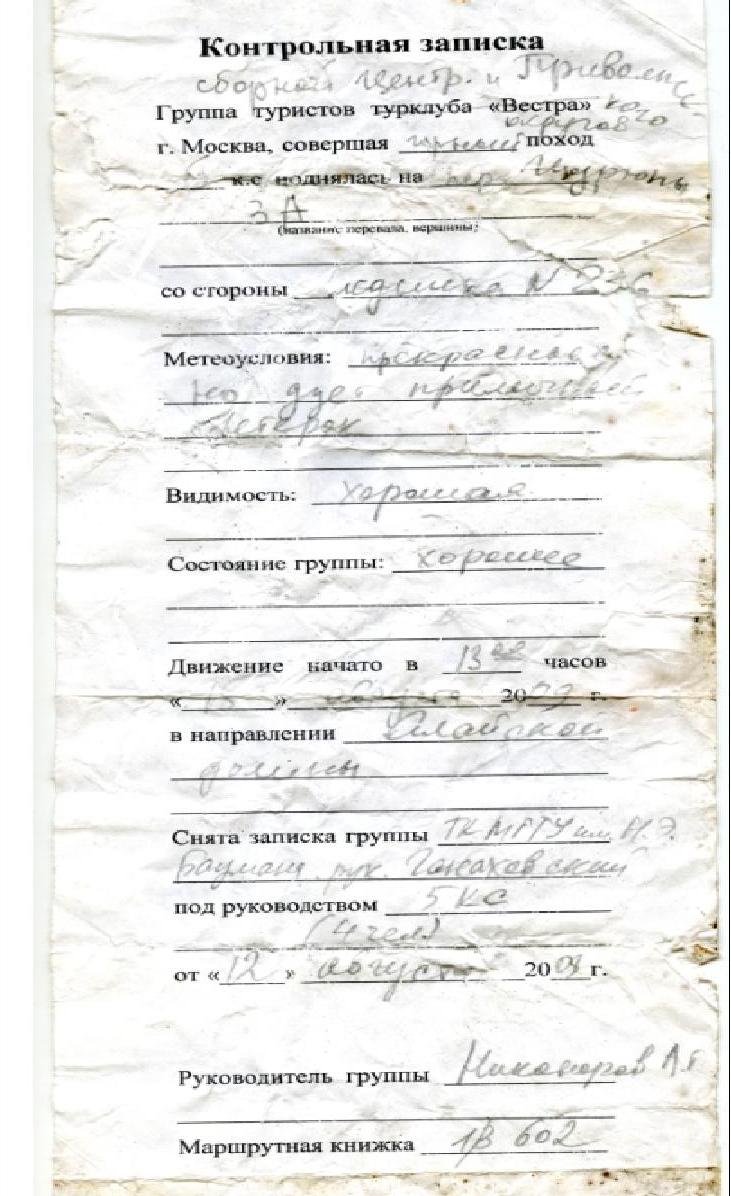 Контрольная записка
сборной Центр. и Приволжс-
Группа туристов турклуба «Вестра» кого
округов
г. Москва, совершая горный поход
к.с поднялась на пер.
3А
(название перевала, вершины)
со стороны ледника N 236
Метеоусловия: прекрасные
но дует приличный
ветерок
Видимость: хорошая
Состояние группы: хорошее
Движение начато в 13 00 часов
« » августа 2009 г.
в направлении Алайской
долины
Снята записка группы ТК МГТУ им. Н.Э.
Баумана рук.
под руководством 5 КС
(4 чел)
от «12» августа 2009 г.
Руководитель группы Никоноров А.
Маршрутная книжка 1В 602